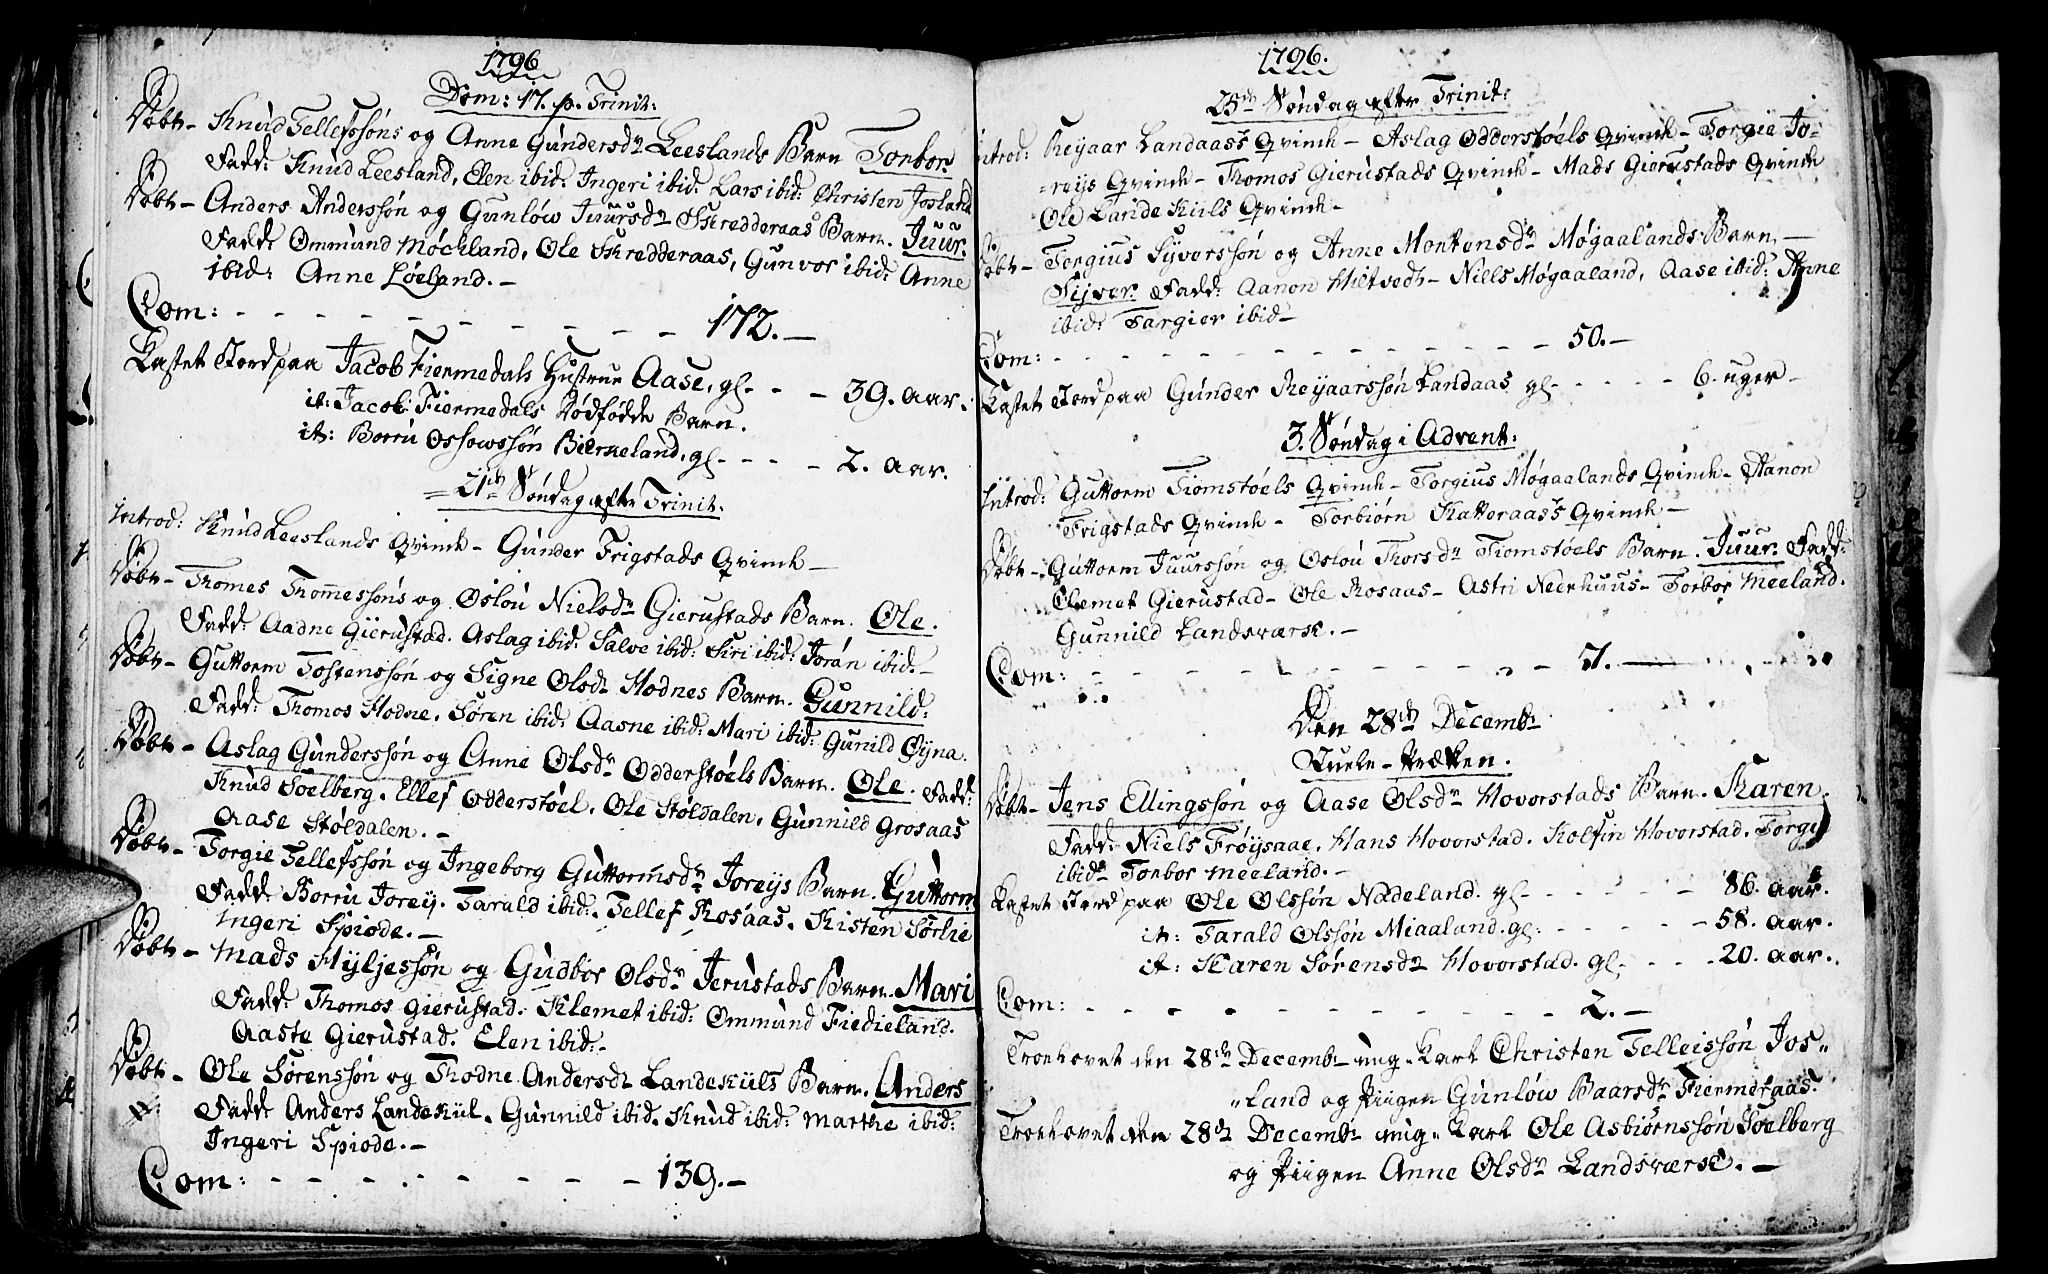 1796
Dom: 17. p. Trinit:
Døbt – Knud Tellefssøns og Anne Gundersdr Leeslands Barn Torbor.
Fadd: Knud Leesland, Elen ibid: Ingeri ibid: Lars ibid: Christen Josland
Døbt – Anders Anderssøn og Gunlów Juursdr Skredderaas Barn. Juur.
Fadd: Ommund Móckland, Ole Skredderaas, Gunvor ibid: Anne
ibid: Anne Lóeland. –
Com: – – – – – – – – – 172. –
Kastet Jord paa Jacob Fiermedals Hustrue Aase, gl – – – 39. aar.
it: Jacob Fiermedals dødfødde Barn.
it: Borru Ossowssón Bierkeland, gl – – – – 2. aar.
21de Søndag efter Trinit.
Introd: Knud Leeslands Qvinde – Gunder Frigstads Qvinde –
Døbt – Thomes Thomessøns og Oslou Nielsdr Gierustads Barn. Ole.
Fadd: Aadne Gierustad. Aslag ibid: Salve ibid: Siri ibid: Jorán ibid: –
Døbt – Guttorm Tostenssón og Signe Olsdr Hodnes Barn. Gunnild.
Fadd: Thomos Hodne. Sóren ibid: Aasne ibid: Mari ibid: Gunild Øyna.
Døbt – Aslag Gunderssón og Anne Olsdr Odderstóels Barn. Ole. Fadd:
Knud Sóelberg. Ellef Odderstóel. Ole Stóldalen. Gunnild Grosaas
Aase Stóldalen. –
Døbt – Torgie Tellefssón og Ingeborg Guttormsdr Joreÿs Barn. Guttorm
Fadd: Borru Joreÿ. Tarald ibid: Tellef Rosaas. Kisten Sórlie
Ingeri Spiode. –
Døbt – Mads Kÿljessón og Gudbor Olsdr Jerustads Barn. Mari
Fadd: Thomos Gierustad. Klemet ibid: Ommund Fiedieland.
Aaste Gierustad. Elen ibid: –
Døbt – Ole Sórenssón og Thodne Andersdr Landekiils Barn. Anders
Fadd: Anders Landekiil. Gunnild ibid. Knud ibid: Marthe ibid:
Ingeri Spiode. –
Com: – – – – – – – – 139. –
1796.
25de Søndag efter Trinit:
Introd: Reÿaar Landaass Qvinde – Aslag Odderstóels Qvinde – Torgie Jo-
=reÿs Qvinde – Thomos Gierustads Qvinde – Mads Gierustads Qvinde
Ole Lande Kiils Qvinde –
Døbt – Torgius Syverssón og Anne Mortensdr Mógaalands Barn –
Sijver. Fadd: Aanon Hiltvedt – Niels Mógaaland, Aase ibid: Anne
ibid: Targier ibid –
Com: – – – – – – – – – – – – 50. –
Kastet Jord paa Gunder Reÿaarssón Landaas gl – – – – – 6. uger –
3. Søndag i Advent:
Introd: Guttorm Tiomstóels Qvinde – Torgius Mógaalands Qvinde – Aanon
Frigstads Qvinde – Torbiórn Katteraass Qvinde –
Døbt – Guttorm Juurssón og Oslou Thorsdr Tiomstóels Barn. Juur. Fadd:
Clemet Gierustad – Ole Rosaas – Astri Nederhuus – Torbor Meeland.
Gunnild Landsværk. –
Com: – – – – – – – – – – – 7. –
Den 28de Decemb:
Stuele-Præken.
Døbt – Jens Ellingssón og Aase Olsdr Hovorstads Barn. Karen.
Fadd: Niels Fróysaae. Hans Hovorstad. Kolfin Hovorstad. Torge
ibid: Torbor Meeland. –
Kastet Jord paa Ole Olssón Nadeland. gl – – – – – 86. aar.
it: Tarald Olssón Miaaland. gl: – – – – – 58. aar.
it: Karen Sórensdr Hovorstad. gl – – – – 20. aar.
Com: – – – – – – – – – – 2. –
Troelovet den 28de Decemb: ung-Karl Christen Telleissón Jos-
-land og Piigen Gunlów Baarsdr Fiermeraas:
Troelovet den 28de Decemb: ung-Karl Ole Asbiórnssón Sóelberg
og Piigen Anne Olsdr Landsværk. –